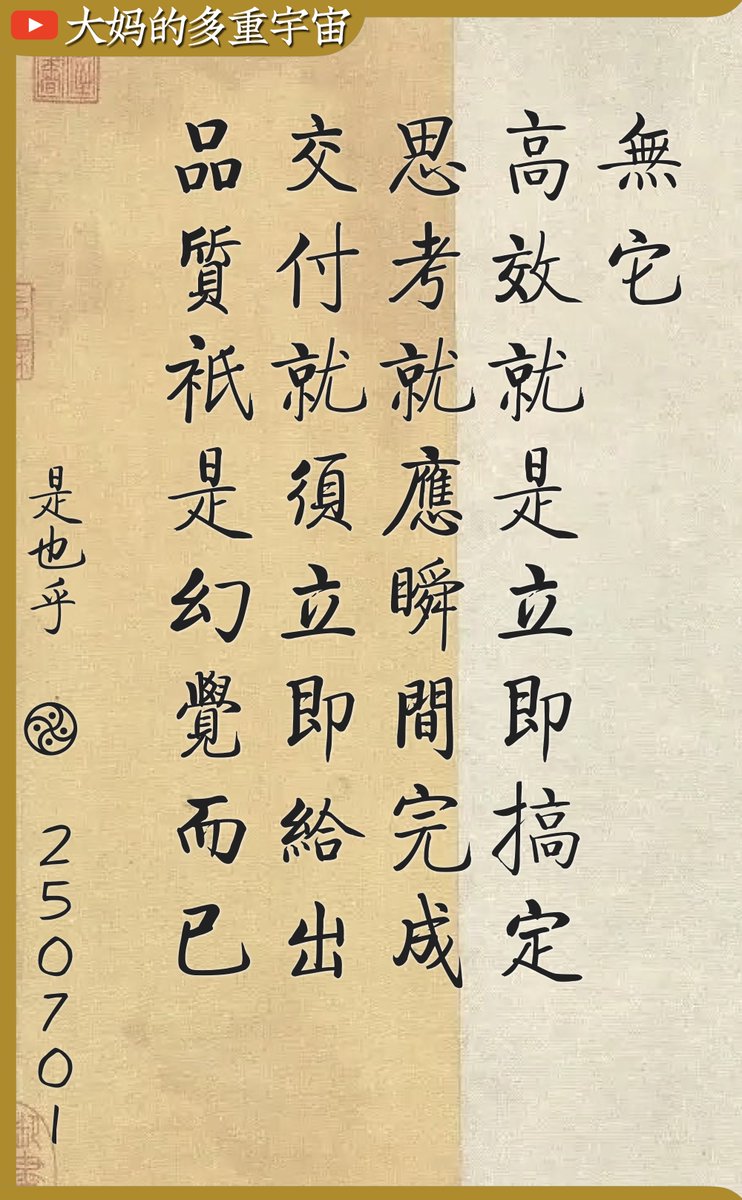 大妈的多重宇宙
無它
高效就是立即搞定
思考就應瞬間完成
交付就須立即給出
品質祇是幻覺而已
是也乎
250701